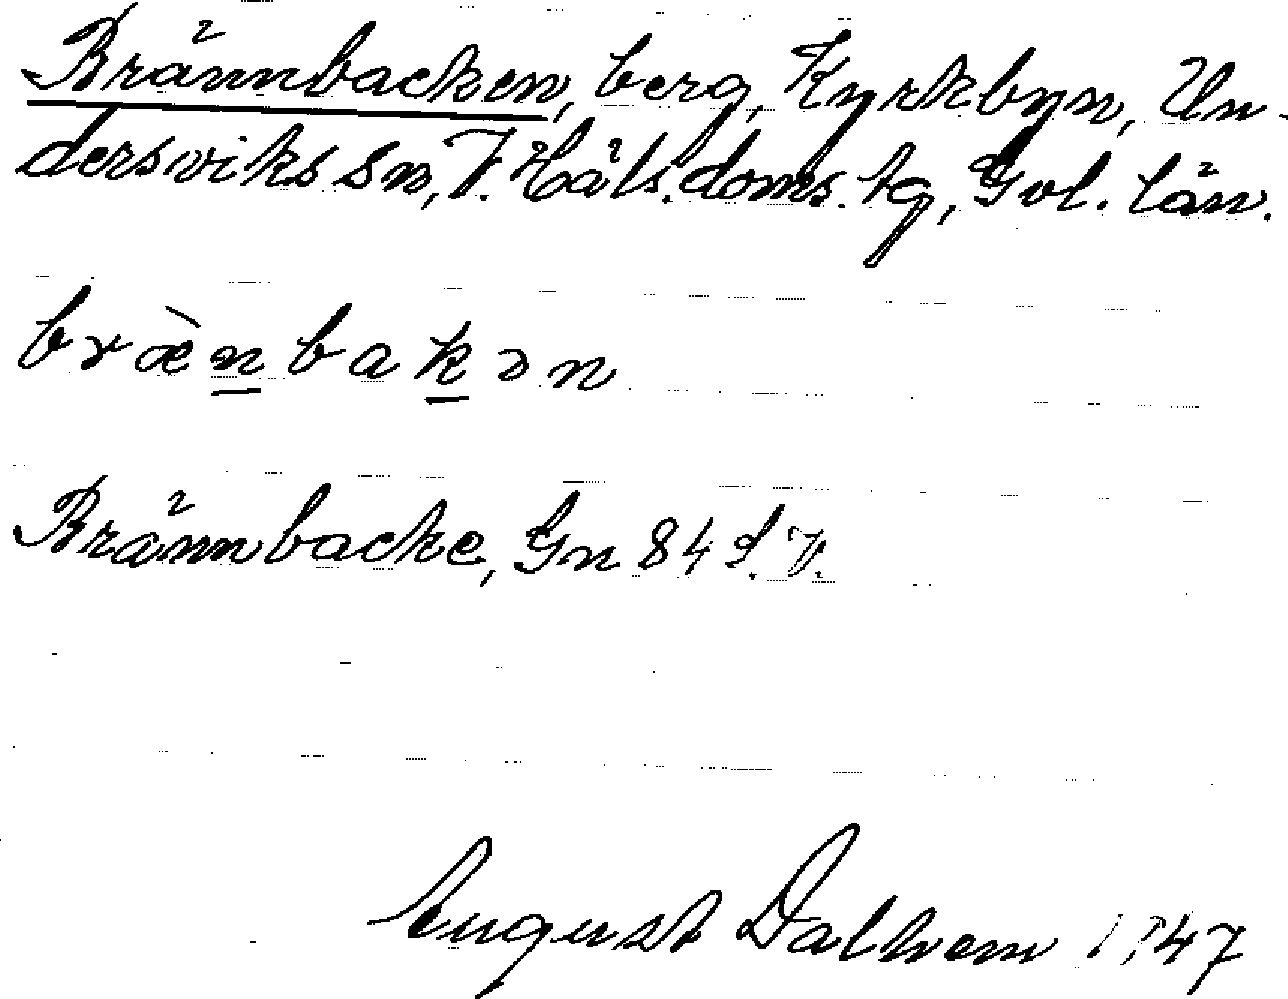 Brännbacken, berg, Kyrkbyn, Un-
dersviks sn, V. Häls. doms. tg, Gvl. län.
bræ̀n̲bak̲ən
Brännbacke, Gn 84 S.V.
August Dalhem 1947